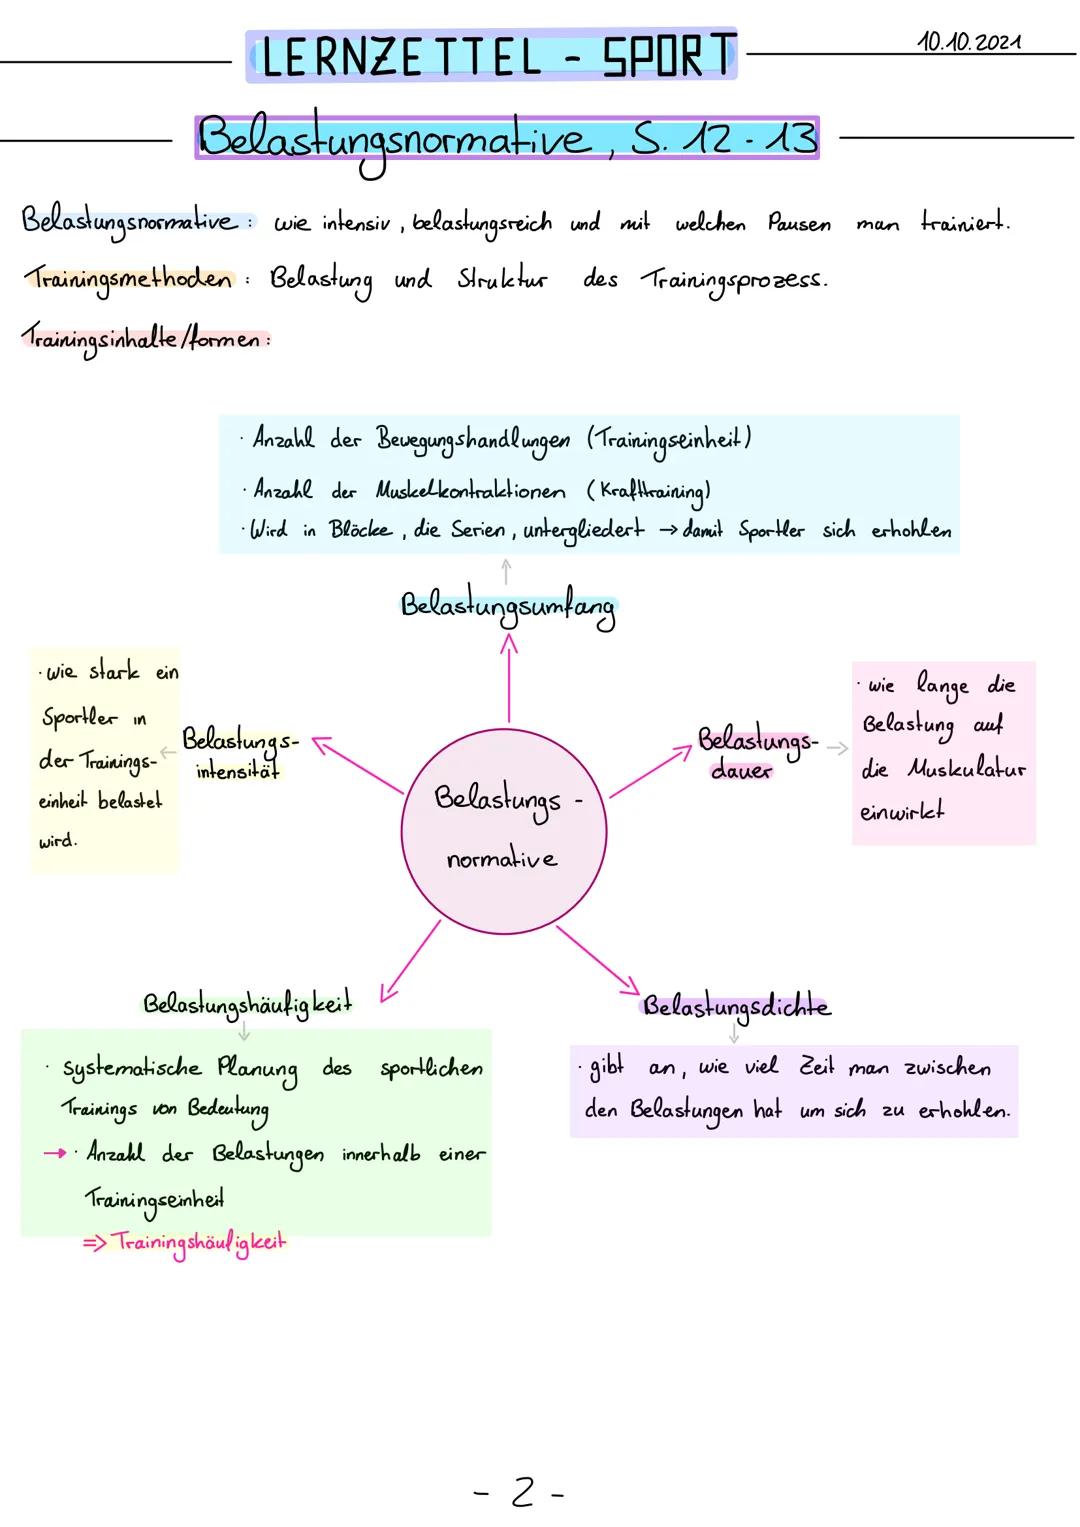 LERNZETTEL - SPORT
10.10.2021
Belastungsnormative, S. 12-13
Belastungsnormative: wie intensiv, belastungsreich und mit welchen Pausen man trainiert.
Trainingsmethoden: Belastung und Struktur des Trainingsprozess.
Trainingsinhalte/formen:
· Anzahl der Bewegungshandlungen (Trainingseinheit)
· Anzahl der Muskelkontraktionen (Krafttraining)
· Wird in Blöcke, die Serien, untergliedert → damit Sportler sich erhohlen
Belastungsumfang
· wie stark ein
Sportler in
der Trainings-
einheit belastet
wird.
Belastungs-
intensität
Belastungs-
dauer
· wie lange die
Belastung auf
die Muskulatur
einwirkt
Belastungs-
normative
Belastungshäufigkeit
· systematische Planung des sportlichen
Trainings von Bedeutung
→ · Anzahl der Belastungen innerhalb einer
Trainingseinheit
=> Trainingshäufigkeit
Belastungsdichte
· gibt an, wie viel Zeit man zwischen
den Belastungen hat um sich zu erhohlen.
- 2 -